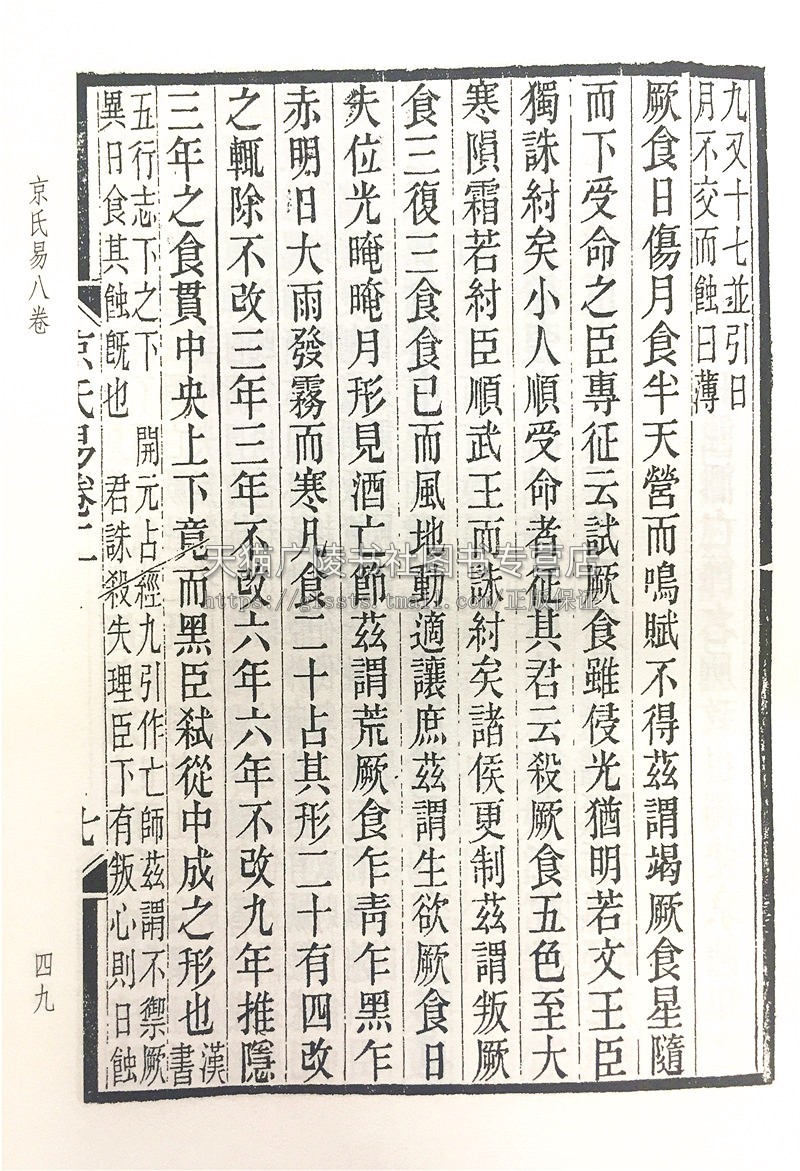 九又十七並引日
月不交而蝕曰薄
厥食日傷月食半天營而鳴賦不得茲謂竭厥食星隨
而下受命之臣專征云試厥食雖侵光猶明若文王臣
獨誅紂矣小人順受命者征其君云殺厥食五色至大
寒隕霜若紂臣順武王而誅紂矣諸侯更制茲謂叛厥
食三復三食食已而風地動適讓庶茲謂生欲厥食日
失位光晻晻月形見酒亡節茲謂荒厥食乍青乍黑乍
赤明日大雨發霧而寒凡食二十占其形二十有四改
之輒除不改三年三年不改六年六年不改九年推隱
三年之食貫中央上下竟而黑臣弒從中成之形也漢
書
五行志下之下 開元占經九引作亡師茲謂不禦厥
異日食其蝕旣也 君誅殺失理臣下有叛心則日蝕
京氏易卷二
七
京氏易八卷
四九
天猫广陵书社图书专营店
https://glssts.tmall.com/正版保证